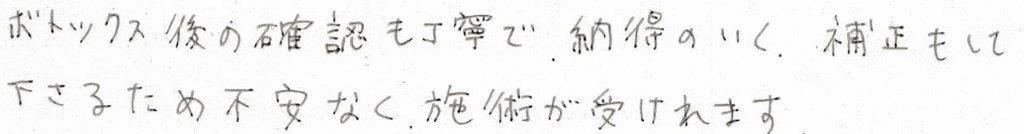 ボトックス後の確認も丁寧で、納得のいく、補正もして
下さるため不安なく、施術が受けれます